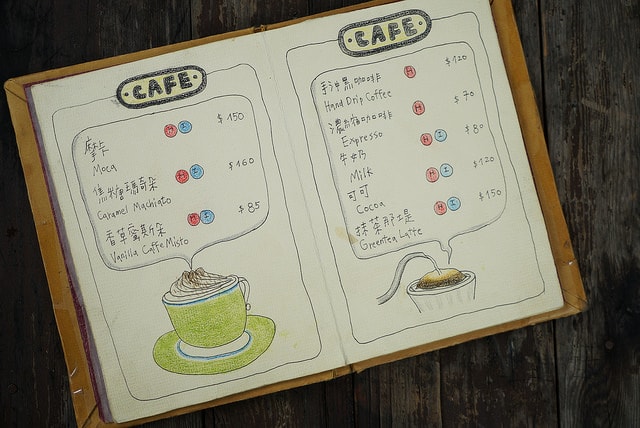 CAFE
摩卡 H I $150
Moca
焦糖瑪奇朵 H I $160
Caramel Machiato
香草蜜斯朵 H I $85
Vanilla Caffe Misto
CAFE
手沖黑咖啡 H $120
Hand Drip Coffee
濃縮咖啡 H $70
Expresso
牛奶 H I $80
Milk
可可 H I $120
Cocoa
抹茶那堤 H I $150
Greentea Latte